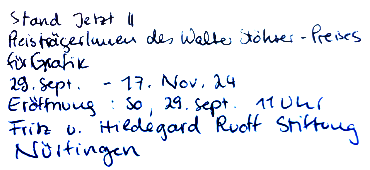 Stand Jetzt II
PreisträgerInnen des Walter Stöhrer-Preises
für Grafik
29. Sept. - 17. Nov. 24
Eröffnung: So, 29. Sept. 11 Uhr
Fritz u. Hildegard Ruoff Stiftung
Nürtingen